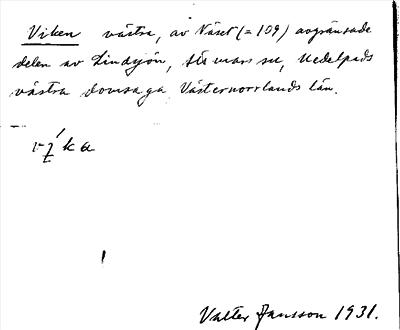 Viken västra, av Näset (= 109) avgränsade
delen av Lindsjön, Stöde sn, Medelpads
västra domsaga Västernorrlands län.
Valter Jansson 1931.